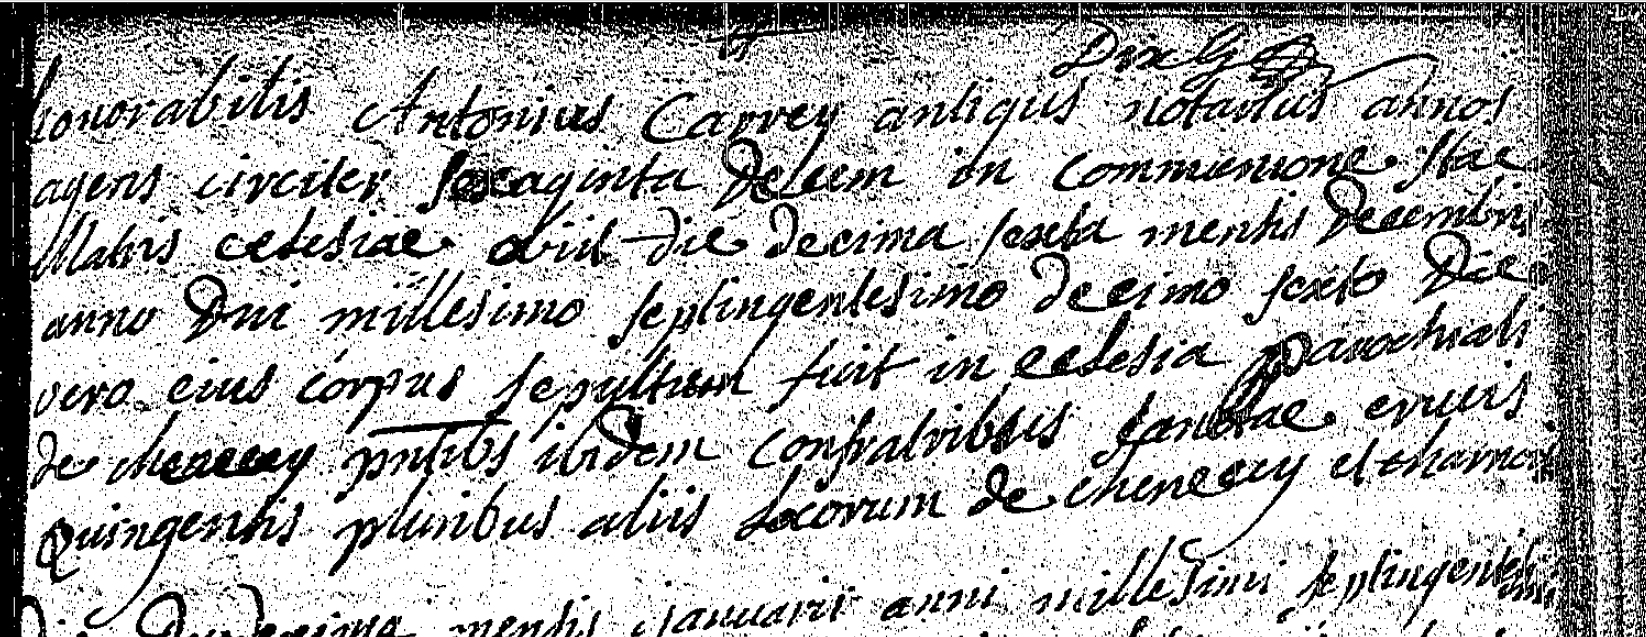 honorabilis Antonius Carrey antiqus notarius annos
agens circiter sexaginta decem in communione stae
Matris eclesiae obiit die decima sexta mensis decembris
anno Dni millesimo septingentesimo decimo sexto Die
vero eius corpus sepultum fuit in eclesia parochiali
de chenecey pntibs ibidem confratribus sanctae crucis
Quingentis pluribus aliis locorum de chenecey et charnay
mensis januarii anni millesimi septingentesimi